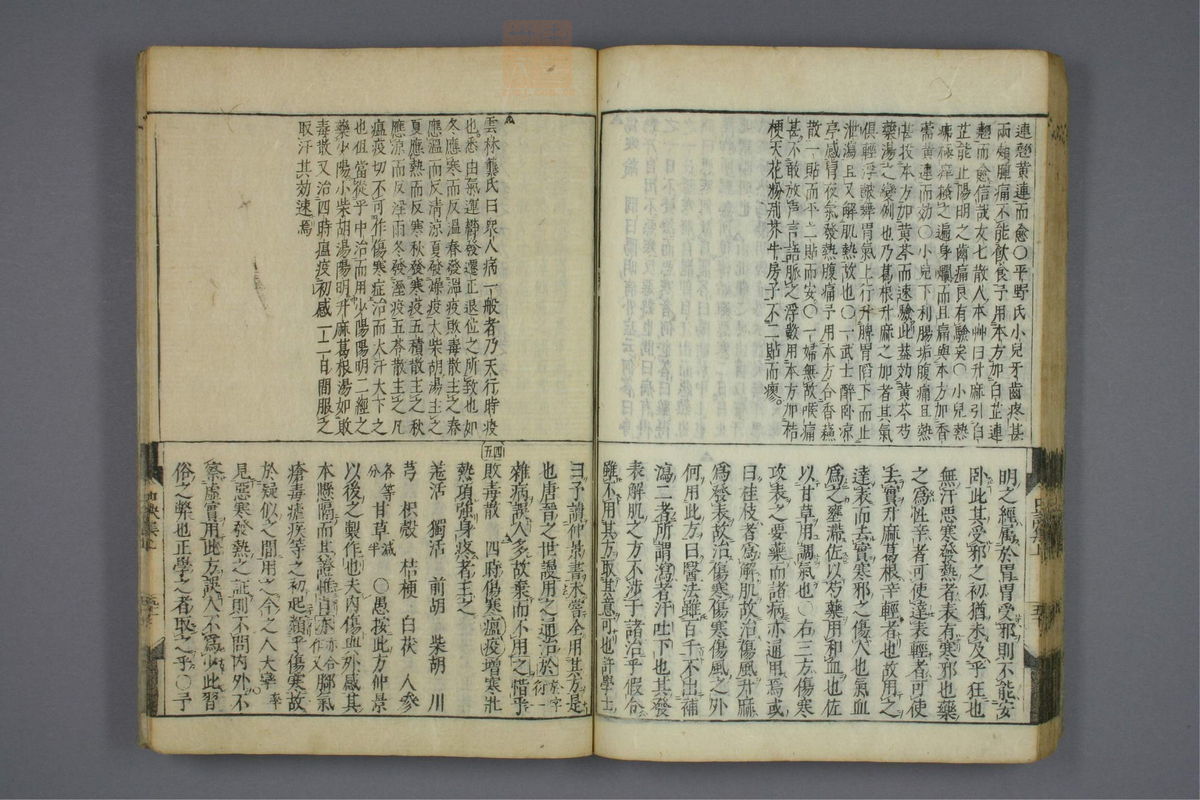 連翹黄連而愈〇平野氏小兒牙齒疼甚
兩頰腫痛不能飲食予用本方加白芷連
翹而愈信哉友七散人本艸曰升麻引白
芷能止陽明之齒痛良有驗矣〇小兒熱
遍身爛而且扁與本方加香
薷黄連而効〇小兒下利腸垢腹痛且熱
甚投本方加黄芩而速驗此蓋効黄芩芍
藥湯之變例也乃葛根升麻之加者其氣
俱輕浮皷舞胃氣上行升脾胃陷下而止
泄瀉且又解肌熱故也〇一武士醉卧凉
亭感冒夜氣發熱腹痛予用本方合香蘓
散一貼而平二貼而安〇一婦無故喉痛
甚不敢放声言語脈之浮數用本方加桔
梗天花粉荊芥牛房子不二貼而瘳
明之經属於胃胃受邪則不能安
卧此其受邪之初猶未及乎狂也
無汗悪寒發熱者表有寒邪也藥
之為性辛者可使達表輕者可使
去實升麻葛根辛輕者也故用之
達表而去實寒邪之傷人也氣血
為之壅滞佐以芍藥用和血也佐
以甘草用調氣也〇右三方傷寒
攻表之要藥而諸病亦通用焉或
曰桂枝者為解肌故治傷風升麻
為發表故治傷寒傷寒傷風之外
何用此方曰醫法雖百千不出補
瀉二者所謂瀉者汗吐下也其發
表解肌之方不渉于諸治乎假令
雖不用其方取其意可也許學士
雲林龔氏曰衆人病一般者乃天行時疫
也悉由氣運欝發遷正退位之所致也如
冬應寒而反温春發温疫敗毒散主之春
應温而反清凉夏發燥疫大柴胡湯主之
夏應熱而反寒秋發寒疫五積散主之秋
應凉而反淫雨冬發湿疫五苓散主之凡
瘟疫切不可作傷寒症治而大汗大下之
也但當從乎中治而用少陽陽明二經之
藥少陽小柴胡湯陽明升麻葛根湯如敗
毒散又治四時瘟疫初感一二日間服之
取汗其効速焉
曰予讀仲景書未嘗全用其方是
也唐晋之世謾用之通治於
雜病誤人多故棄而不用之惜乎
四五
敗毒散　四時傷寒瘟疫増寒壯
熱項強身疼者主之
羗活　獨活　前胡　柴胡　川
芎　枳殻　桔梗　白茯　人參
各等分　甘草減半　〇愚按此方仲景
以後之製作也夫内傷與外感其
本懸隔而其證
瘡毒瘧疾等之初起類乎傷寒故
於疑似之間用之今之人大率
見悪寒發熱之証則不問内外不
察虛實用此方誤人不為少此習
俗之弊也正學之者取之乎〇予